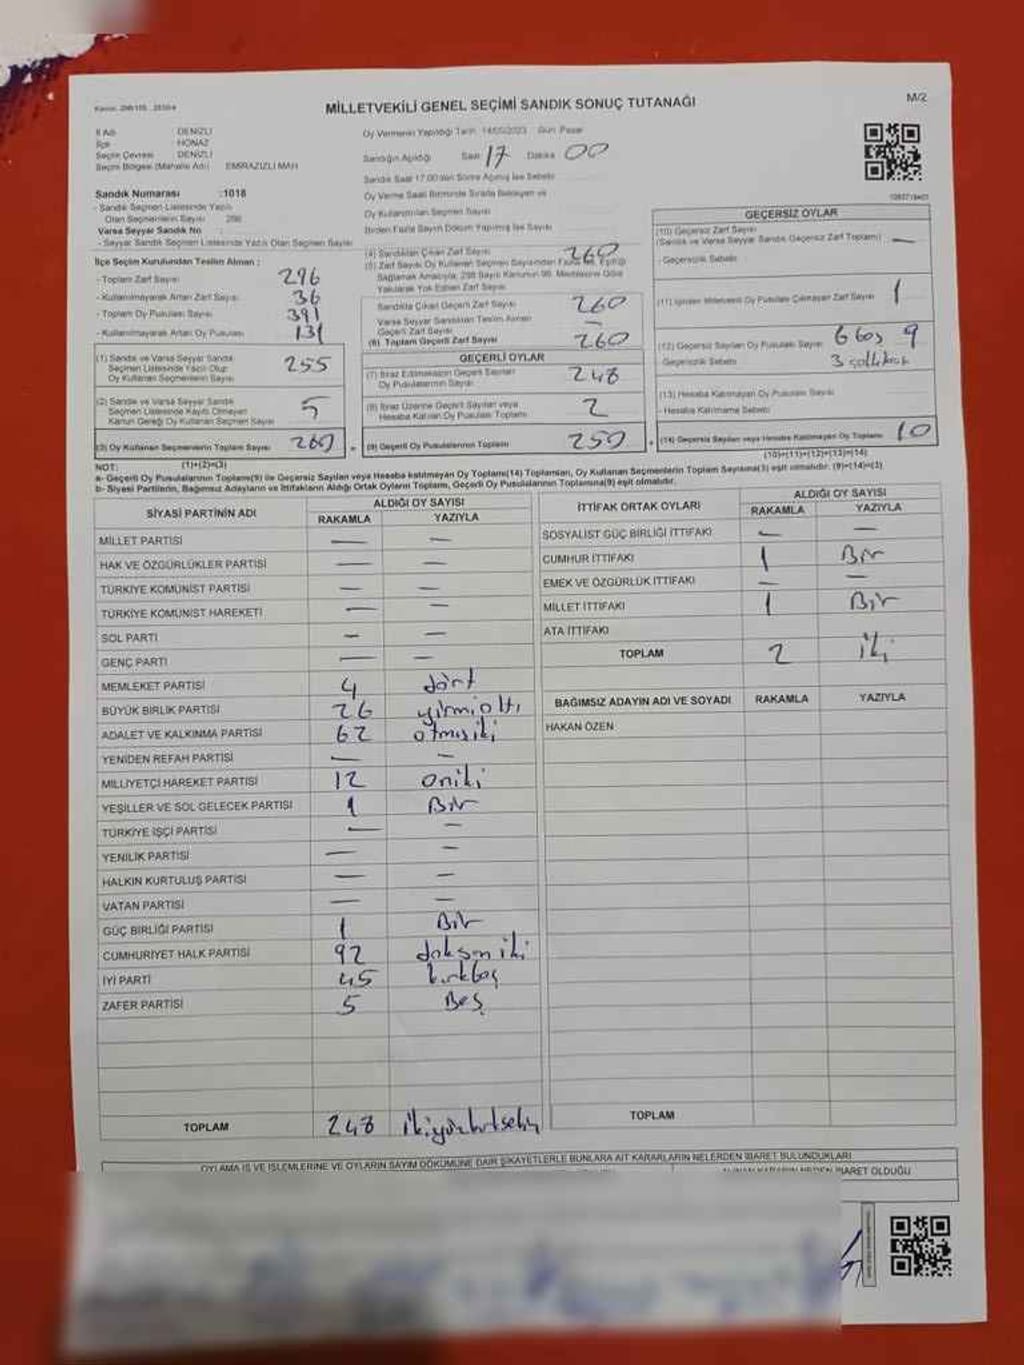 MİLLETVEKİLİ GENEL SEÇİMİ SANDIK SONUÇ TUTANAĞI
M/2
İl Adı : DENİZLİ
İlçe : HONAZ
Seçim Çevresi : DENİZLİ
Seçim Bölgesi (Mahalle Adı) : EMİRAZİZLİ MAH
Sandık Numarası :1018
- Sandık Seçmen Listesinde Yazılı
Olan Seçmenlerin Sayısı
Varsa Seyyar Sandık No :
- Seyyar Sandık Seçmen Listesinde Yazılı Olan Seçmen Sayısı
İlçe Seçim Kurulundan Teslim Alınan :
- Toplam Zarf Sayısı 296
- Kullanılmayarak Artan Zarf Sayısı 36
- Toplam Oy Pusulası Sayısı 391
- Kullanılmayarak Artan Oy Pusulası 131
(1) Sandık ve Varsa Seyyar Sandık
Seçmen Listesinde Yazılı Olup
Oy Kullanan Seçmenlerin Sayısı 255
(2) Sandık ve Varsa Seyyar Sandık
Seçmen Listesinde Kayıtlı Olmayan
Kanun Gereği Oy Kullanan Seçmen Sayısı 5
(3) Oy Kullanan Seçmenlerin Toplam Sayısı 260
(1)+(2)=(3)
Oy Vermenin Yapıldığı Tarih : 14/05/2023 Gün: Pazar
Sandığın Açıldığı Saat 17 Dakika 00
Sandık Saat 17.00'den Sonra Açılmış İse Sebebi
Oy Verme Saati Bitiminde Sırada Bekleyen ve
Oy Kullandırılan Seçmen Sayısı
Birden Fazla Sayım Döküm Yapılmış İse Sayısı
(4) Sandıktan Çıkan Zarf Sayısı 260
(5) Zarf Sayısı Oy Kullanan Seçmen Sayısından Fazla İse, Eşitliği
Sağlamak Amacıyla, 298 Sayılı Kanunun 98. Maddesine Göre
Yakılarak Yok Edilen Zarf Sayısı
Sandıkta Çıkan Geçerli Zarf Sayısı 260
Varsa Seyyar Sandıktan Teslim Alınan
Geçerli Zarf Sayısı —
(6) Toplam Geçerli Zarf Sayısı 260
GEÇERLİ OYLAR
(7) İtiraz Edilmeksizin Geçerli Sayılan
Oy Pusulalarının Sayısı 248
(8) İtiraz Üzerine Geçerli Sayılan veya
Hesaba Katılan Oy Pusulası Toplamı 2
(9) Geçerli Oy Pusulalarının Toplamı 250
GEÇERSİZ OYLAR
(10) Geçersiz Zarf Sayısı
(Sandık ve Varsa Seyyar Sandık Geçersiz Zarf Toplamı) —
- Geçersizlik Sebebi
(11) İçinden Milletvekili Oy Pusulası Çıkmayan Zarf Sayısı 1
(12) Geçersiz Sayılan Oy Pusulası Sayısı 6 Boş 9
Geçersizlik Sebebi 3
(13) Hesaba Katılmayan Oy Pusulası Sayısı
- Hesaba Katılmama Sebebi
(14) Geçersiz Sayılan veya Hesaba Katılmayan Oy Toplamı 10
(10)+(11)+(12)+(13)=(14)
NOT:
a- Geçerli Oy Pusulalarının Toplamı(9) ile Geçersiz Sayılan veya Hesaba katılmayan Oy Toplamı(14) Toplamları, Oy Kullanan Seçmenlerin Toplam Sayısına(3) eşit olmalıdır. (9)+(14)=(3)
b- Siyasi Partilerin, Bağımsız Adayların ve İttifakların Aldığı Ortak Oyların Toplamı, Geçerli Oy Pusulalarının Toplamına(9) eşit olmalıdır.
SİYASİ PARTİNİN ADI ALDIĞI OY SAYISI
RAKAMLA YAZIYLA
MİLLET PARTİSİ — —
HAK VE ÖZGÜRLÜKLER PARTİSİ — —
TÜRKİYE KOMÜNİST PARTİSİ — —
TÜRKİYE KOMÜNİST HAREKETİ — —
SOL PARTİ — —
GENÇ PARTİ — —
MEMLEKET PARTİSİ 4 dört
BÜYÜK BİRLİK PARTİSİ 26 yirmialtı
ADALET VE KALKINMA PARTİSİ 62 atmışiki
YENİDEN REFAH PARTİSİ — —
MİLLİYETÇİ HAREKET PARTİSİ 12 oniki
YEŞİLLER VE SOL GELECEK PARTİSİ 1 Bir
TÜRKİYE İŞÇİ PARTİSİ — —
YENİLİK PARTİSİ — —
HALKIN KURTULUŞ PARTİSİ — —
VATAN PARTİSİ — —
GÜÇ BİRLİĞİ PARTİSİ 1 Bir
CUMHURİYET HALK PARTİSİ 92 doksan iki
İYİ PARTİ 45 kırkbeş
ZAFER PARTİSİ 5 Beş
TOPLAM 248 ikiyüzkırksekiz
İTTİFAK ORTAK OYLARI ALDIĞI OY SAYISI
RAKAMLA YAZIYLA
SOSYALİST GÜÇ BİRLİĞİ İTTİFAKI — —
CUMHUR İTTİFAKI 1 Bir
EMEK VE ÖZGÜRLÜK İTTİFAKI — —
MİLLET İTTİFAKI 1 Bir
ATA İTTİFAKI
TOPLAM 2 iki
BAĞIMSIZ ADAYIN ADI VE SOYADI RAKAMLA YAZIYLA
HAKAN ÖZEN
TOPLAM
OYLAMA İŞ VE İŞLEMLERİNE VE OYLARIN SAYIM DÖKÜMÜNE DAİR ŞİKAYETLERLE BUNLARA AİT KARARLARIN NELERDEN İBARET BULUNDUKLARI
ALINAN KARARIN NEDEN İBARET OLDUĞU